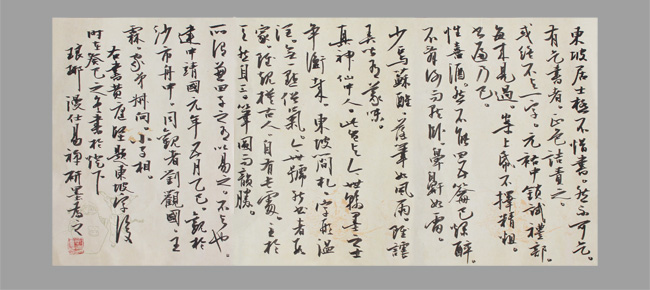 東坡居士極不惜書。然不可乞。
有乞書者。正色詰責之。
或終不與一字。元祐中鎖試禮部。
每來見過。案上紙不擇精粗。
書遍乃已。
性喜酒。然不能四五龠已爛醉。
不辭謝而就臥。鼻鼾如雷。
少焉蘇醒。落筆如風雨。雖謔
弄皆有義味。
真神仙中人。此豈與今世翰墨之士
爭衡哉。東坡簡札。字形溫
潤。無一點俗氣。今世號能書者數
家。雖規摹古人。自有長處。至於
天然自工。筆圓而韻勝。
所謂兼四子之有以易之。不與也。
建中靖國元年五月乙巳。觀於
沙市舟中。同觀者劉觀國。王
霖。家弟叔向。小子相。
右書黃庭堅題東坡字後
時在癸巳之冬書於燈下
琅琊